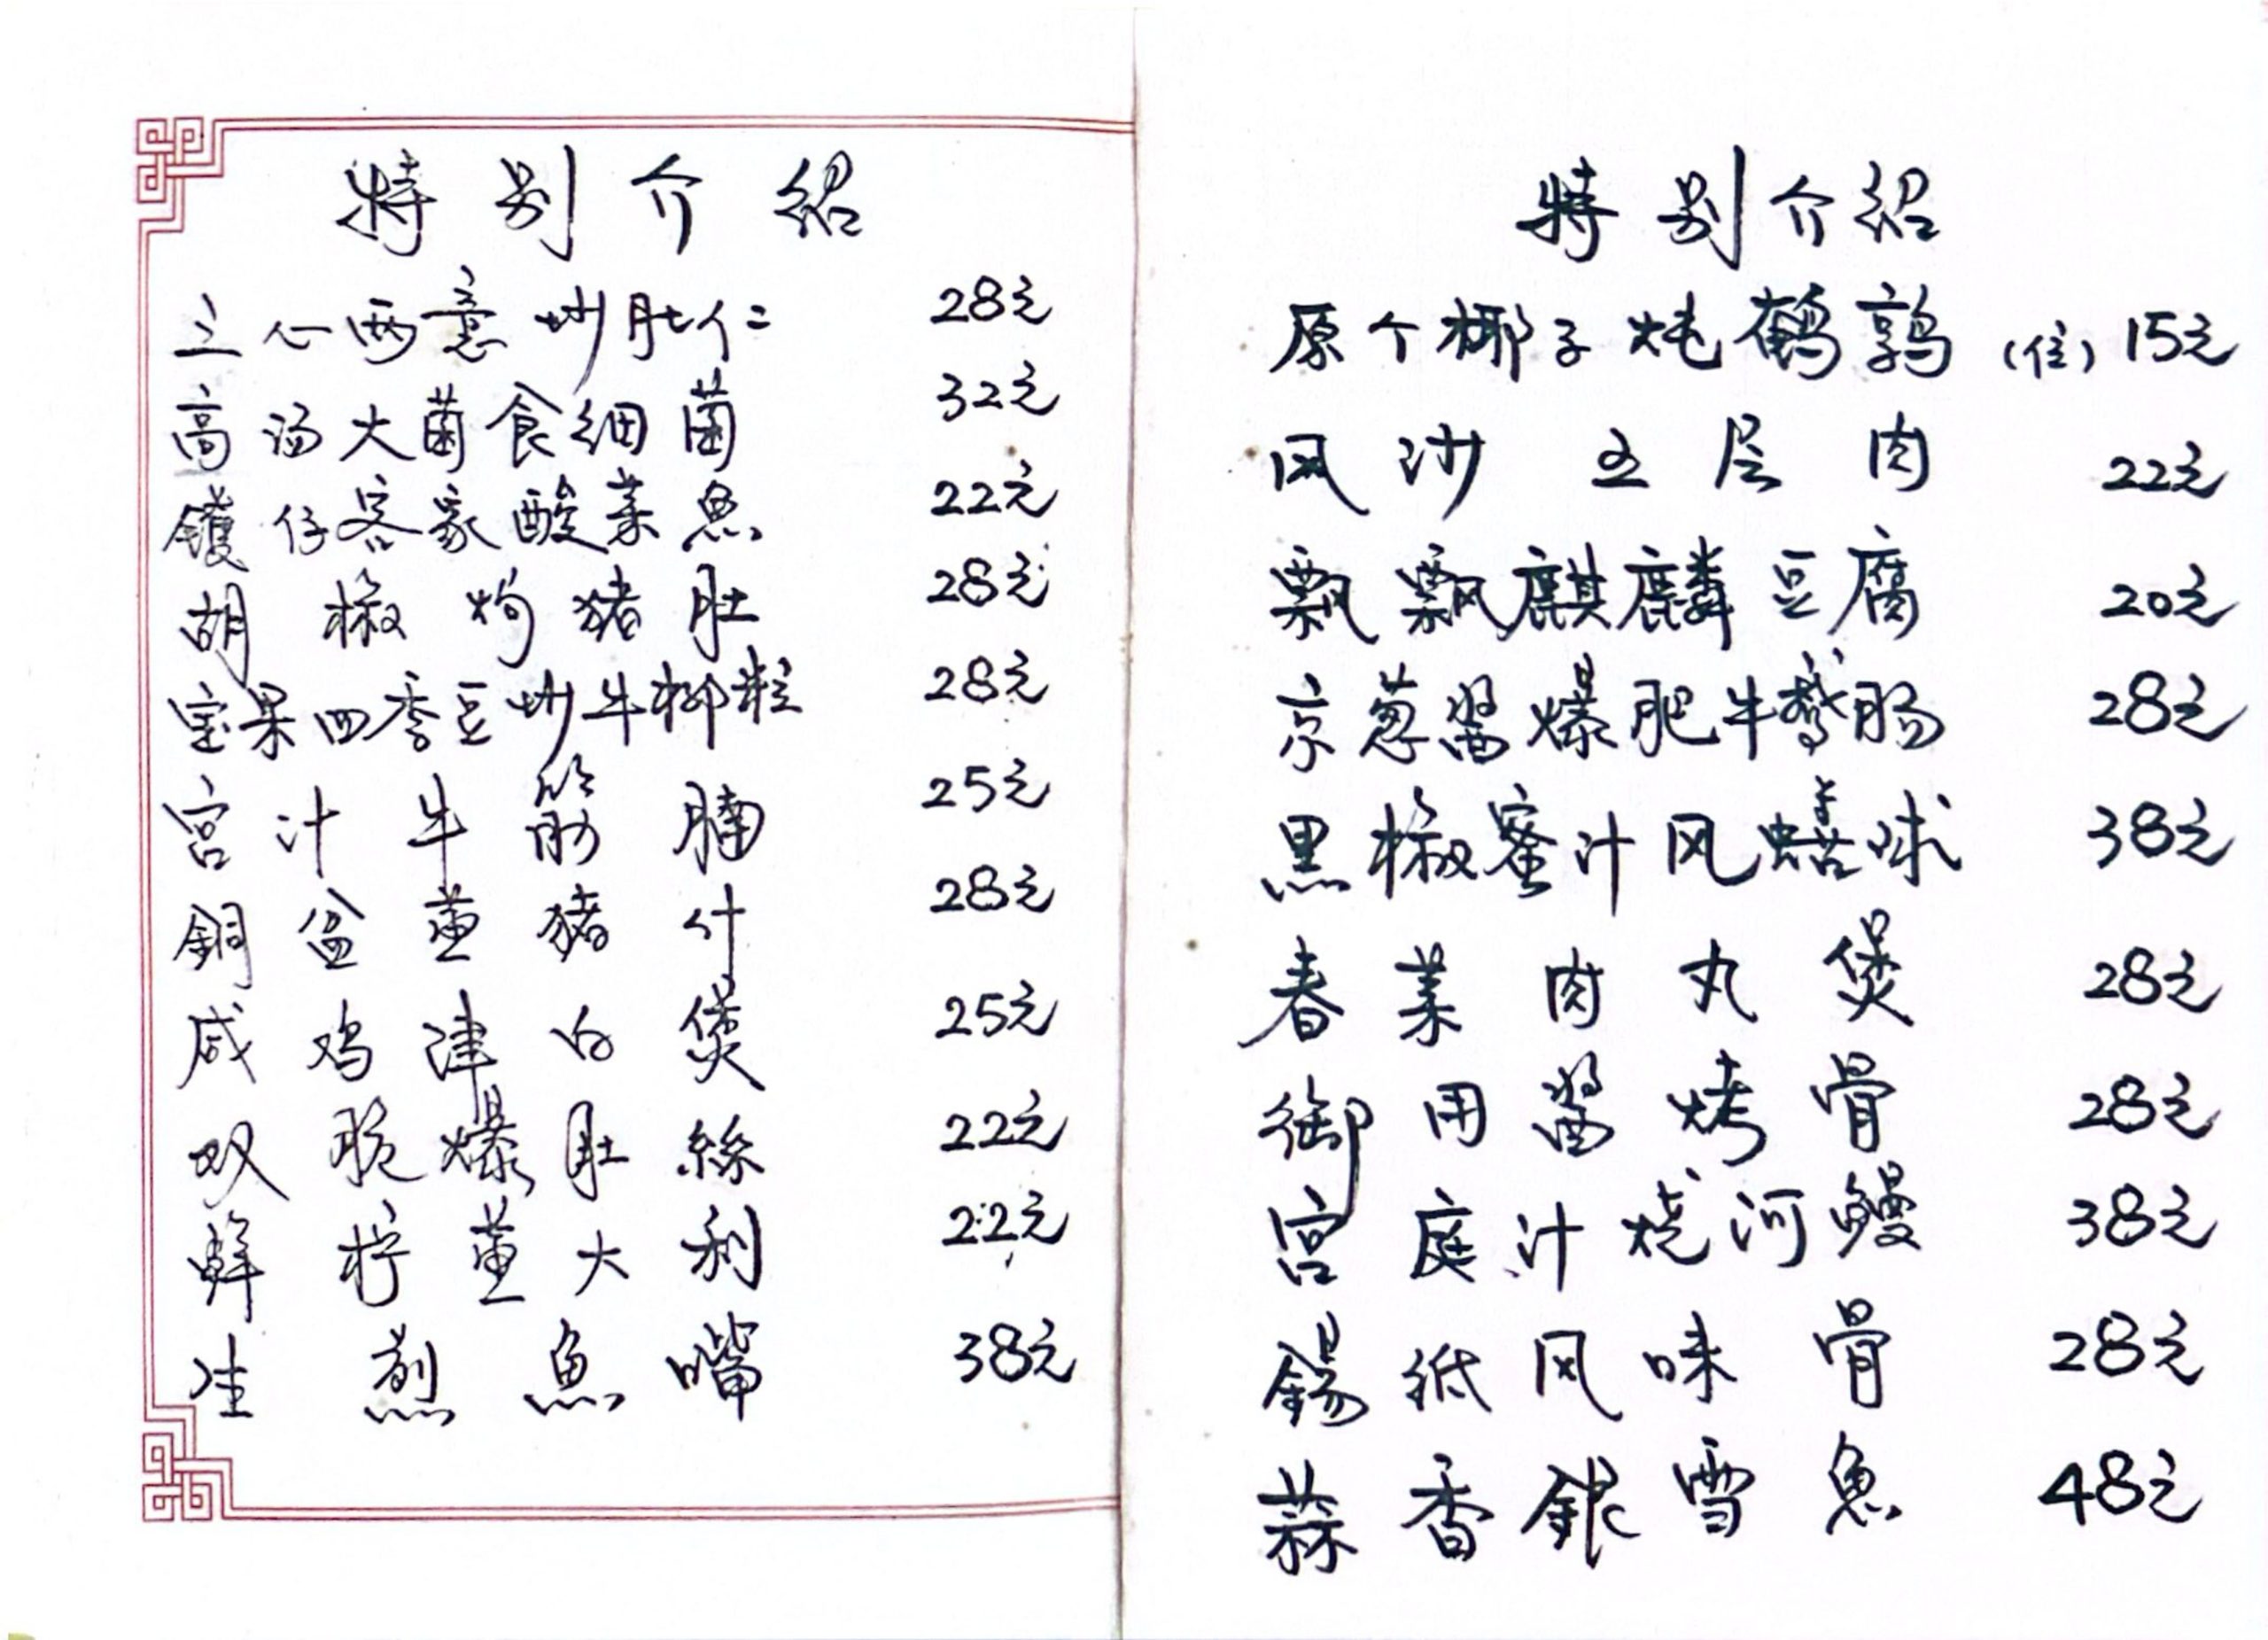 特别介紹
三心两意炒肚仁 28元
高汤大菌食细菌 32元
鑊仔客家酸菜魚 22元
胡椒焗猪肚 28元
宝果四季豆炒牛柳粒 28元
宫汁牛筋腩 25元
銅盆薑猪什 28元
咸鸡津白煲 25元
双脆爆肚絲 22元
鲜柠薑大利 22元
生煎魚嘴 38元
特别介紹
原个椰子炖鹌鹑(位) 15元
风沙五层肉 22元
飘飘麒麟豆腐 20元
京葱醤爆肥牛鹅肠 28元
黑椒蜜汁风蛣球 38元
春菜肉丸煲 28元
御用醤烤骨 28元
宫庭汁烧河鳗 38元
錫纸风味骨 28元
蒜香銀雪魚 48元